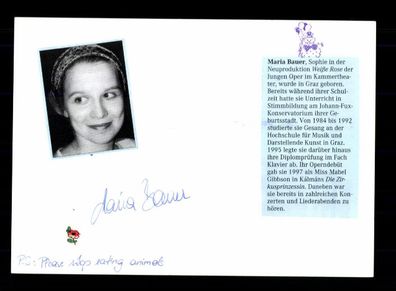 Maria Bauer, Sophie in der
Neuproduktion Weiße Rose der
Jungen Oper im Kammerthea-
ter, wurde in Graz geboren.
Bereits während ihrer Schul-
zeit hatte sie Unterricht in
Stimmbildung am Johann-Fux-
Konservatorium ihrer Ge-
burtsstadt. Von 1984 bis 1992
studierte sie Gesang an der
Hochschule für Musik und
Darstellende Kunst in Graz.
1995 legte sie darüber hinaus
ihre Diplomprüfung im Fach
Klavier ab. Ihr Operndebüt
gab sie 1997 als Miss Mabel
Gibbson in Kálmáns Die Zir-
kusprinzessin. Daneben war
sie bereits in zahlreichen Kon-
zerten und Liederabenden zu
hören.
Maria Bauer
PS: Please stop eating animals